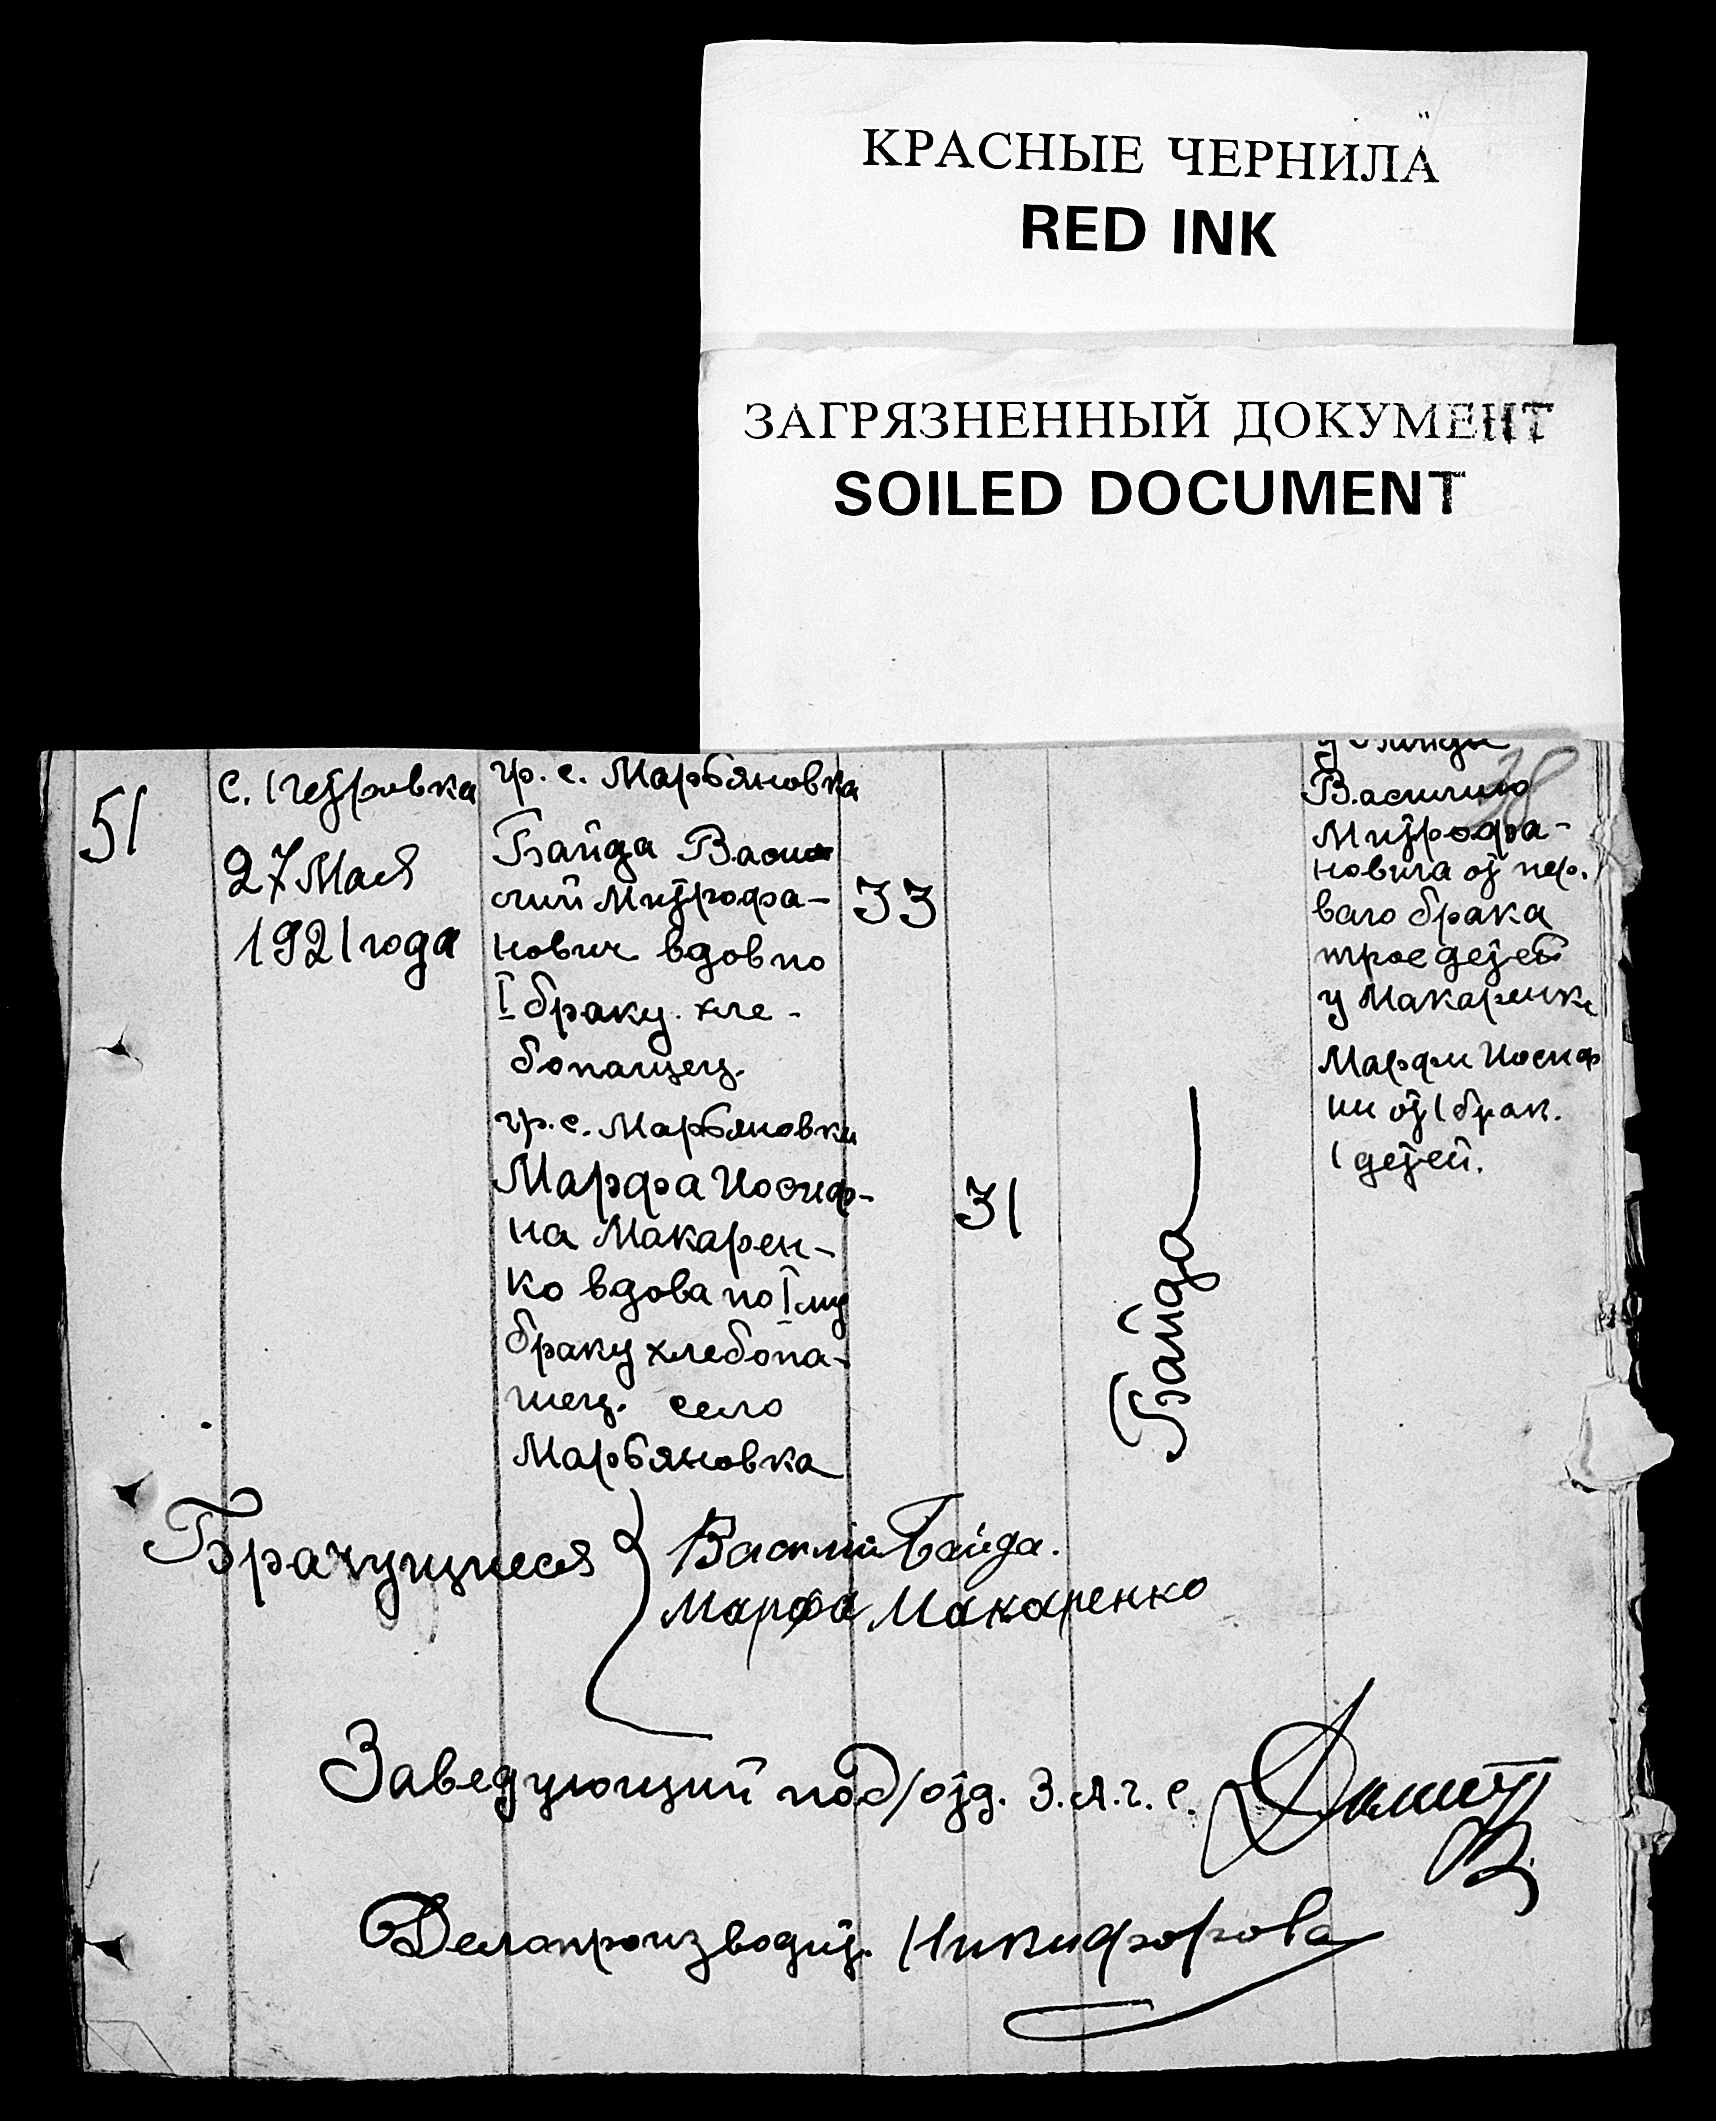 КРАСНЫЕ ЧЕРНИЛА
RED INK
ЗАГРЯЗНЕННЫЙ ДОКУМЕНТ
SOILED DOCUMENT
51
с. Петровка
27 Мая
1921 года
гр. с. Марьяновка
Байда Васи
лий Митрофа-
нович вдов по
I браку. хле-
бопашец.
33
гр. с. Марьяновки
Марфа Иосиф-
на Макарен-
ко вдова по I му
браку хлебопа-
шец. село
Марьяновка
31
Байда
38
Василию
Митрофа-
новича от пер.
ваго брака
трое детей
у Макаренк
Марфи Иосиф
ни от 1 брак.
1 детей.
Брачущиеся
Василий Байда.
Марфа Макаренко
Заведующий под/отд. З.А.г.с.
Делопроизводит. Никифорова